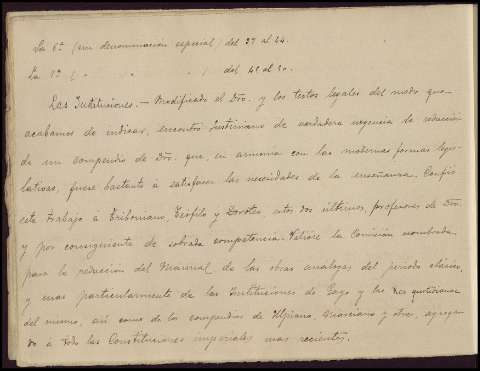 La 6ª (sin denominación especial) del 37 al 44.
La 7ª ( " " " ) del 45 al 50.
Las Instituciones.- Modificado el Dro. y los textos legales del modo que
acabamos de indicar, encontró Justiniano de verdadera urgencia la redacción
de un compendio de Dro. que, en armonía con las modernas formas legis-
lativas, fuese bastante á satisfacer las necesidades de la enseñanza. Confió
este trabajo á Triboniano, Teófilo y Doroteo, estos dos últimos, profesores de Dro.
y por consiguiente de sobrada competencia. Valiose la Comisión nombrada
para la redaccion del Manual de las obras análogas del periodo clásico
y mas particularmente de las Instituciones de Gayo y las Res quotidianae
del mismo, así como de los compendios de Ulpiano, Marciano y otros, agregan
do á todo las Constituciones imperiales mas recientes.